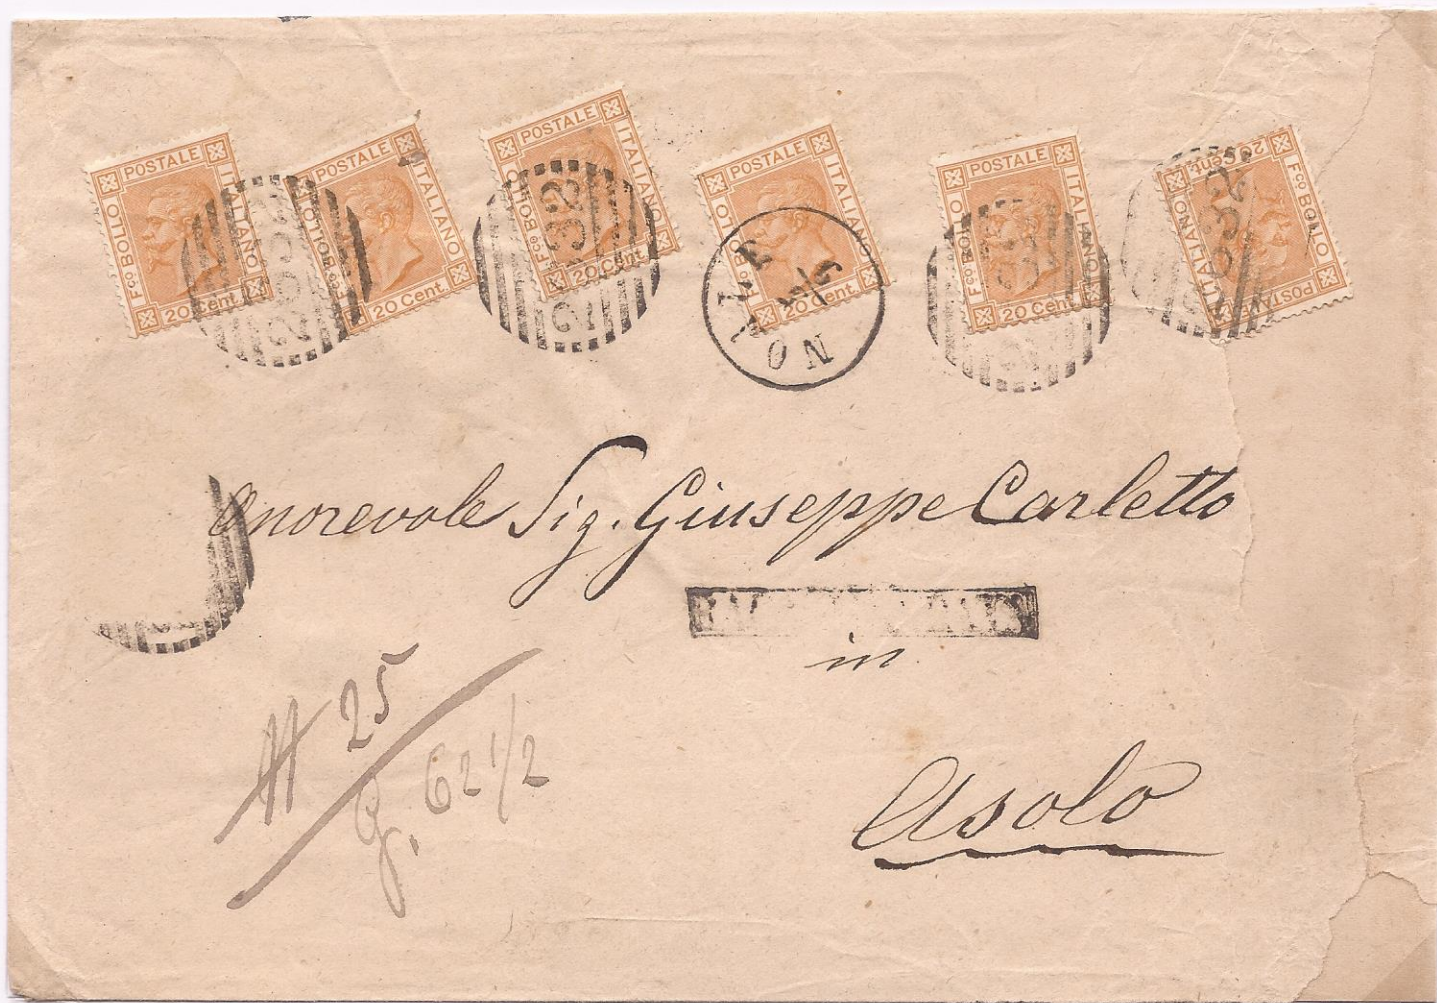 POSTALE ITALIANO F.co BOLLO 20 Cent.
POSTALE ITALIANO F.co BOLLO 20 Cent.
POSTALE ITALIANO F.co BOLLO 20 Cent.
POSTALE ITALIANO F.co BOLLO 20 Cent.
POSTALE ITALIANO F.co BOLLO 20 Cent.
POSTALE ITALIANO F.co BOLLO 20 Cent.
NOALE
Onorevole Sig. Giuseppe Carletto
in
Asolo
25
g. 62 1/2